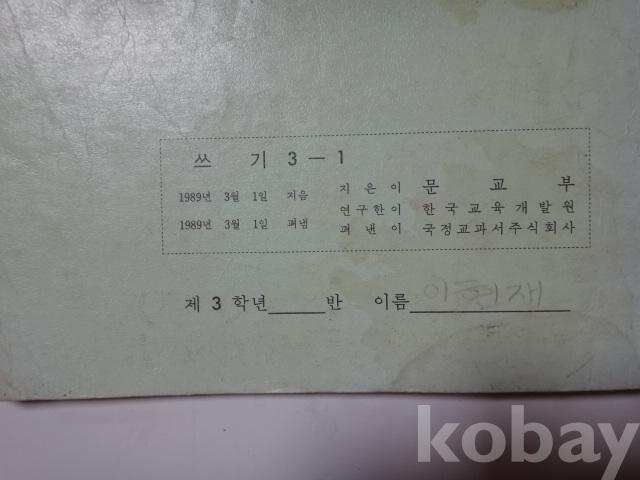 쓰 기 3－1
1989년 3월 1일 지음 지 은 이 문 교 부
연구한이 한국교육개발원
1989년 3월 1일 펴냄 펴 낸 이 국정교과서주식회사
제 3 학년_____반 이름 이현재
kobay